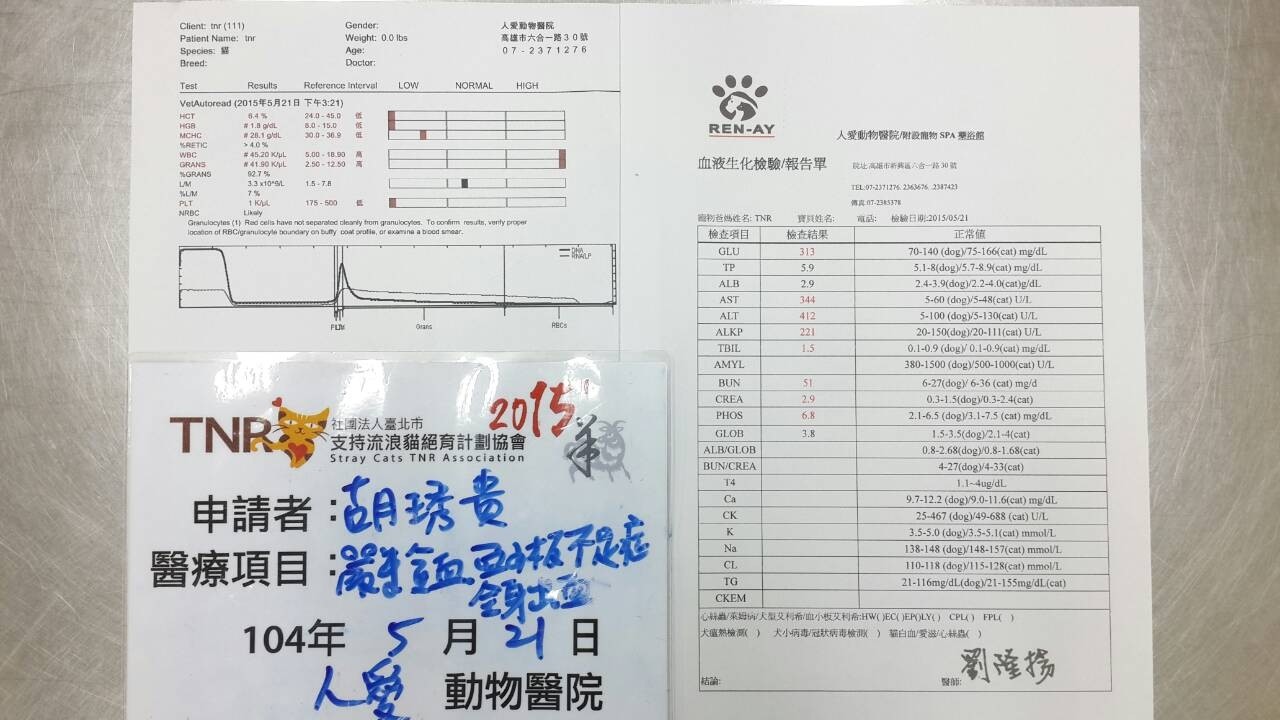 Client: tnr (111)
Gender:
人愛動物醫院
Patient Name: tnr
Weight: 0.0 lbs
高雄市六合一路30號
Species: 貓
Age:
07-2371276
Breed:
Doctor:
Test Results Reference Interval LOW NORMAL HIGH
VetAutoread (2015年5月21日 下午3:21)
HCT 6.4 % 24.0 - 45.0 低
HGB # 1.8 g/dL 8.0 - 15.0 低
MCHC # 28.1 g/dL 30.0 - 36.9 低
%RETIC > 4.0 %
WBC # 45.20 K/µL 5.00 - 18.90 高
GRANS # 41.90 K/µL 2.50 - 12.50 高
%GRANS 92.7 %
L/M 3.3 x10^9/L 1.5 - 7.8
%L/M 7 %
PLT 1 K/µL 175 - 500 低
NRBC Likely
Granulocytes (1) Red cells have not separated cleanly from granulocytes. To confirm results, verify proper
location of RBC/granulocyte boundary on buffy coat profile, or examine a blood smear.
DNA
RNA/LP
PLT Grans RBCs
REN-AY
人愛動物醫院/附設寵物 SPA 藥浴館
血液生化檢驗/報告單
院址:高雄市新興區六合一路 30 號
TEL:07-2371276. 2363676. .2387423
傳真.07-2385378
寵物爸媽姓名: TNR 寶貝姓名: 電話: 檢驗日期:2015/05/21
檢查項目 檢查結果 正常值
GLU 313 70-140 (dog)/75-166(cat) mg/dL
TP 5.9 5.1-8(dog)/5.7-8.9(cat) mg/dL
ALB 2.9 2.4-3.9(dog)/2.2-4.0(cat)g/dL
AST 344 5-60 (dog)/5-48(cat) U/L
ALT 412 5-100 (dog)/5-130(cat) U/L
ALKP 221 20-150(dog)/20-111(cat) U/L
TBIL 1.5 0.1-0.9 (dog)/ 0.1-0.9(cat) mg/dL
AMYL 380-1500 (dog)/500-1000(cat) U/L
BUN 51 6-27(dog)/ 6-36 (cat) mg/d
CREA 2.9 0.3-1.5(dog)/0.3-2.4(cat)
PHOS 6.8 2.1-6.5 (dog)/3.1-7.5 (cat) mg/dL
GLOB 3.8 1.5-3.5(dog)/2.1-4(cat)
ALB/GLOB 0.8-2.68(dog)/0.8-1.68(cat)
BUN/CREA 4-27(dog)/4-33(cat)
T4 1.1~4ug/dL
Ca 9.7-12.2 (dog)/9.0-11.6(cat) mg/dL
CK 25-467 (dog)/49-688 (cat) U/L
K 3.5-5.0 (dog)/3.5-5.1(cat) mmol/L
Na 138-148 (dog)/148-157(cat) mmol/L
CL 110-118 (dog)/115-128(cat) mmol/L
TG 21-116mg/dL(dog)/21-155mg/dL(cat)
CKEM
心絲蟲/萊姆病/犬型艾利希/血小板艾利希:HW( )EC( )EP()LY( ) CPL( ) FPL( )
犬瘟熱檢測( ) 犬小病毒/冠狀病毒檢測( ) 貓白血/愛滋/心絲蟲( )
結論:
醫師: 劉隆揚
TNR
社團法人臺北市
支持流浪貓絕育計劃協會
Stray Cats TNR Association
2015
羊
申請者:胡琇貴
醫療項目:嚴重貧血,血小板不足症
全身出血
104年 5 月 21 日
人愛 動物醫院